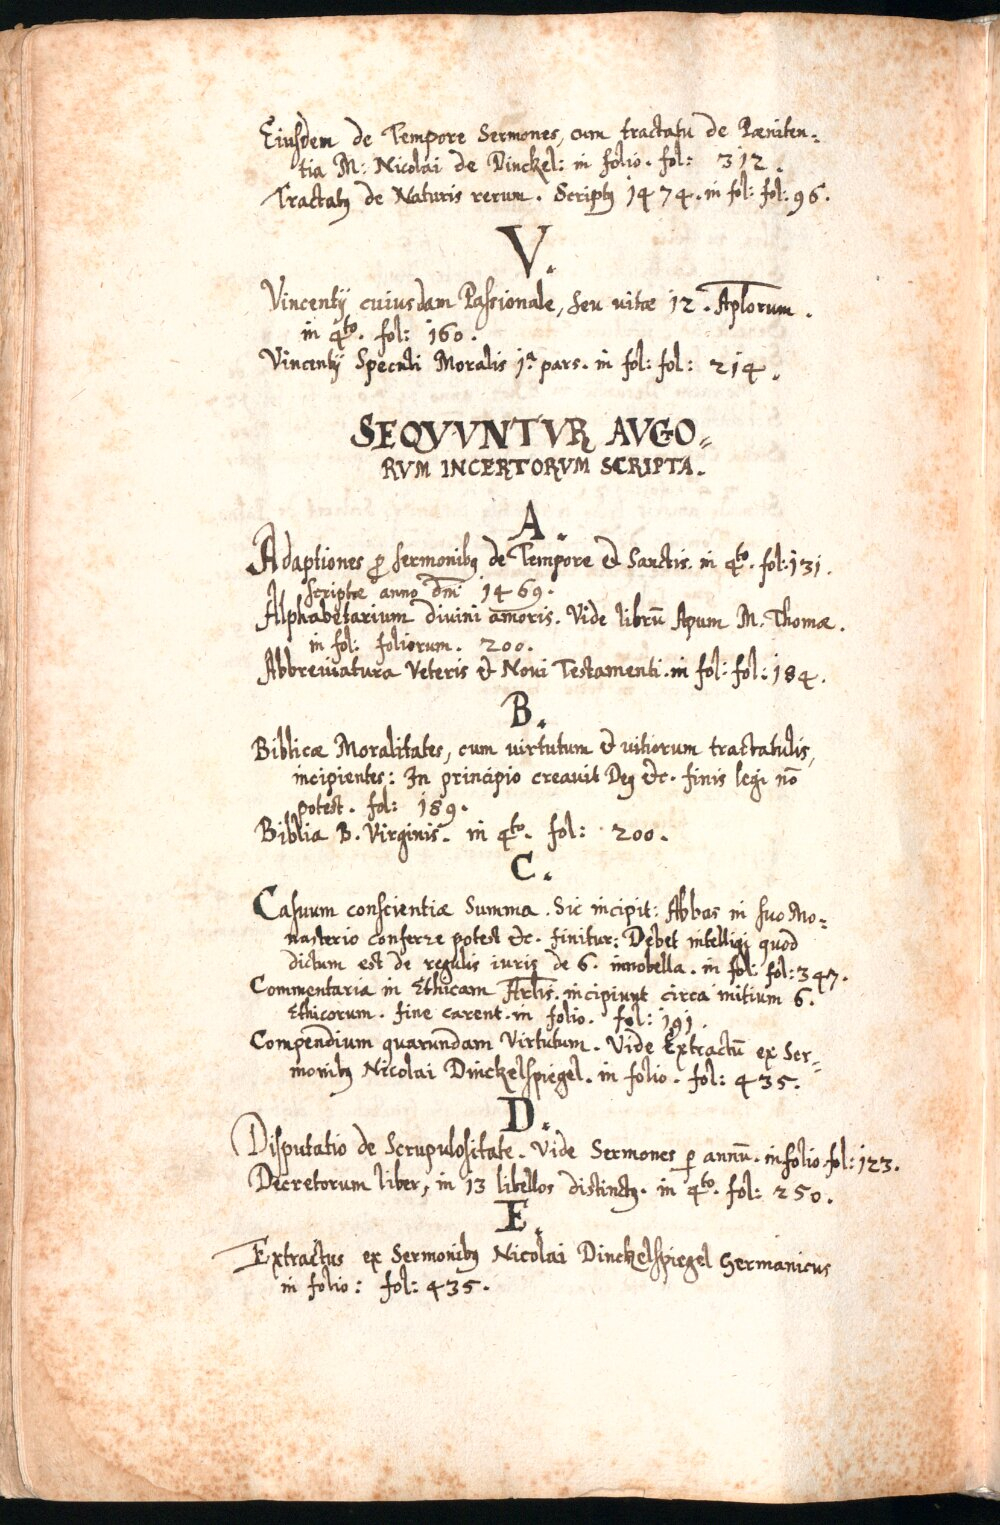 Eiusdem de Tempore Sermones, cum tractatu de Pæniten-
tia M: Nicolai de Dinckel: in folio. fol: 312.
Tractatꝰ de Naturis rerum. Scriptꝰ 1474. in fol: fol: 96.
V.
Vincentij cuiusdam Passionale, seu vitæ 12. Apl̅orum.
in 4to. fol: 160.
Vincentij Speculi Moralis 1a pars. in fol: fol: 214.
SEQVVNTVR AVGO=
RVM INCERTORVM SCRIPTA.
A.
Adaptiones ꝓ sermonibꝰ de Tempore & Sanctis. in 4to. fol: 131.
Scriptæ anno dn̄i 1469.
Alphabetarium divini amoris. Vide librū Apum M. Thomæ.
in fol: foliorum. 200.
Abbreuiatura Veteris & Noui Testamenti. in fol: fol: 184.
B.
Biblicæ Moralitates, cum virtutum & vitiorum tractatulis,
incipientes: In principio creauit Deꝰ &c. finis legi nō
potest. fol: 189.
Biblia B. Virginis. in 4to. fol: 200.
C.
Casuum conscientiæ Summa. Sic incipit: Abbas in suo Mo=
nasterio conferre potest &c. finitur: Debet intelligi quod
dictum est de regulis iuris de 6. innobella. in fol: fol: 347.
Commentaria in Ethicam Arl̅is. incipiunt circa initium 6.
Ethicorum. fine carent. in folio. fol: 191.
Compendium quarundam Virtutum. Vide Extractū ex Ser=
monibꝰ Nicolai Dinckelspiegel. in folio. fol: 435.
D.
Disputatio de Scrupulositate. Vide Sermones ꝑ annū. in folio. fol: 123.
Decretorum liber, in 13 libellos distinctꝰ. in 4to. fol: 250.
E.
Extractus ex Sermonibꝰ Nicolai Dinckelspiegel Germanicus
in folio: fol: 435.